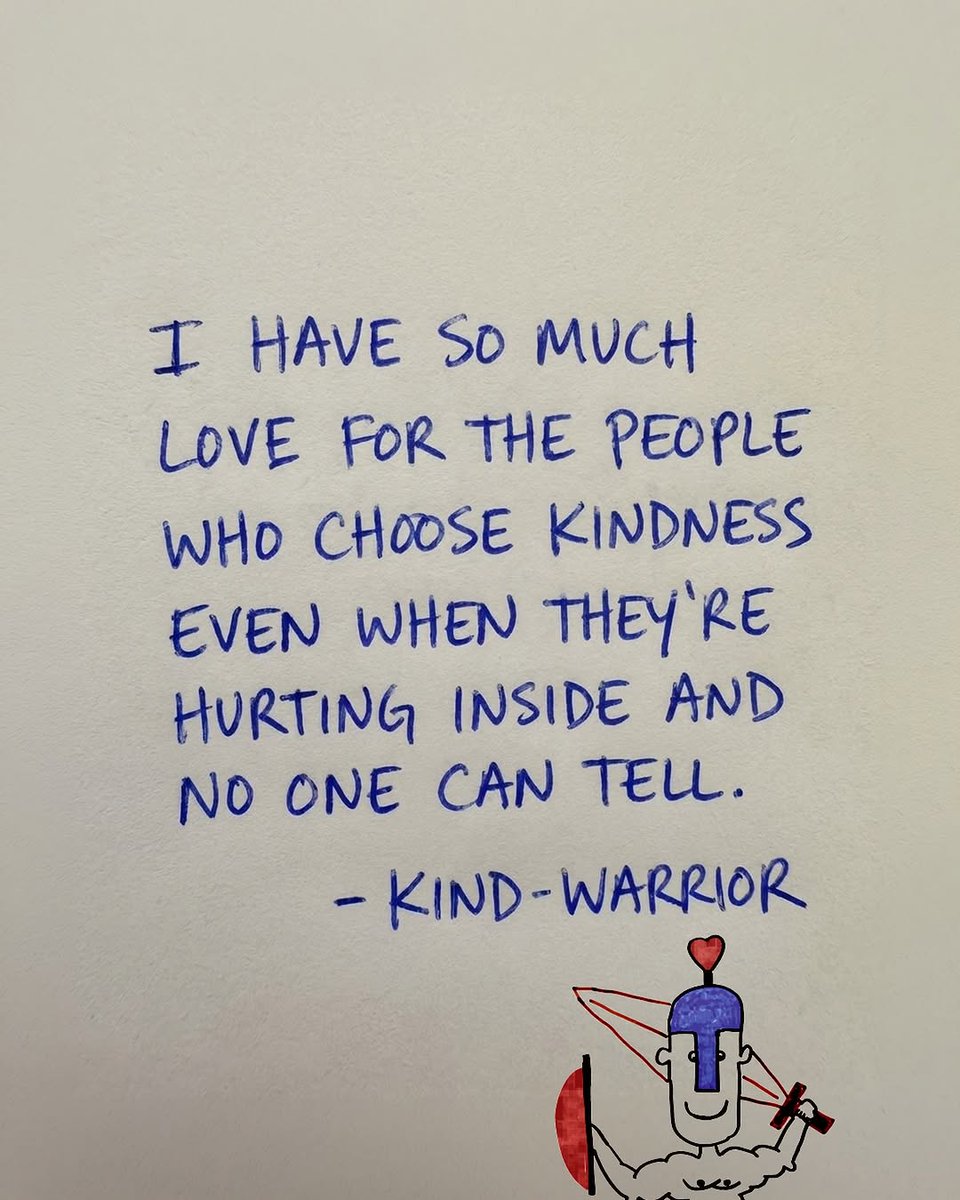 I HAVE SO MUCH
LOVE FOR THE PEOPLE
WHO CHOOSE KINDNESS
EVEN WHEN THEY'RE
HURTING INSIDE AND
NO ONE CAN TELL.
- KIND-WARRIOR